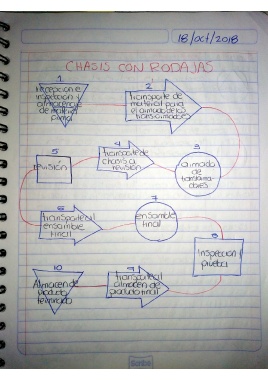 18/oct/2018
CHASIS CON RODAJAS
1
Recepcion e
inspeccion y
almacen
de material
2
Transporte de
material para
el armado de los
3
armado
de
4
transporte de
chasis a
revisión
5
revisión
6
transporte al
ensamble
final
7
ensamble
final
8
Inspección y
prueba
9
transporte al
almacen de
producto final
10
Almacen de
producto
terminado
Scribe